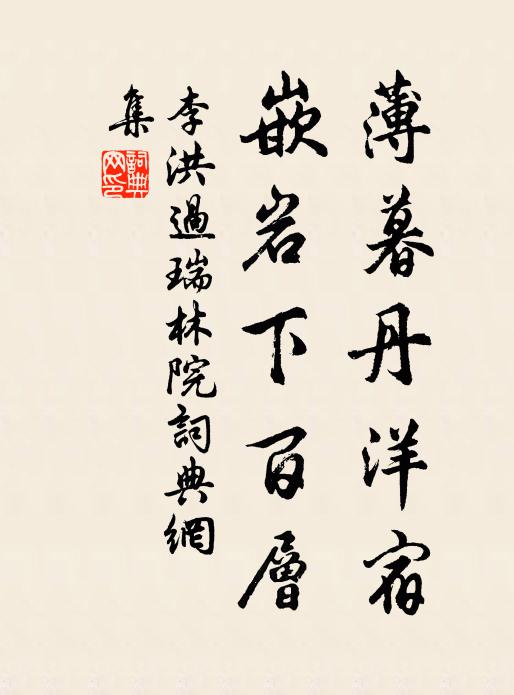 薄暮丹洋宿
嵌岩下百層
李洪過瑞林院詞典網
集
詞典網印